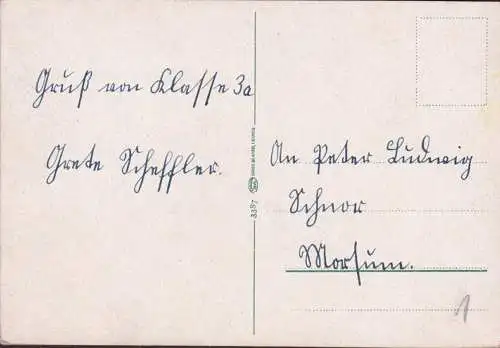 Gruß von Klasse 3a
Grete Scheffler.
3387
An Peter Ludwig
Schnor
Morsum.
1